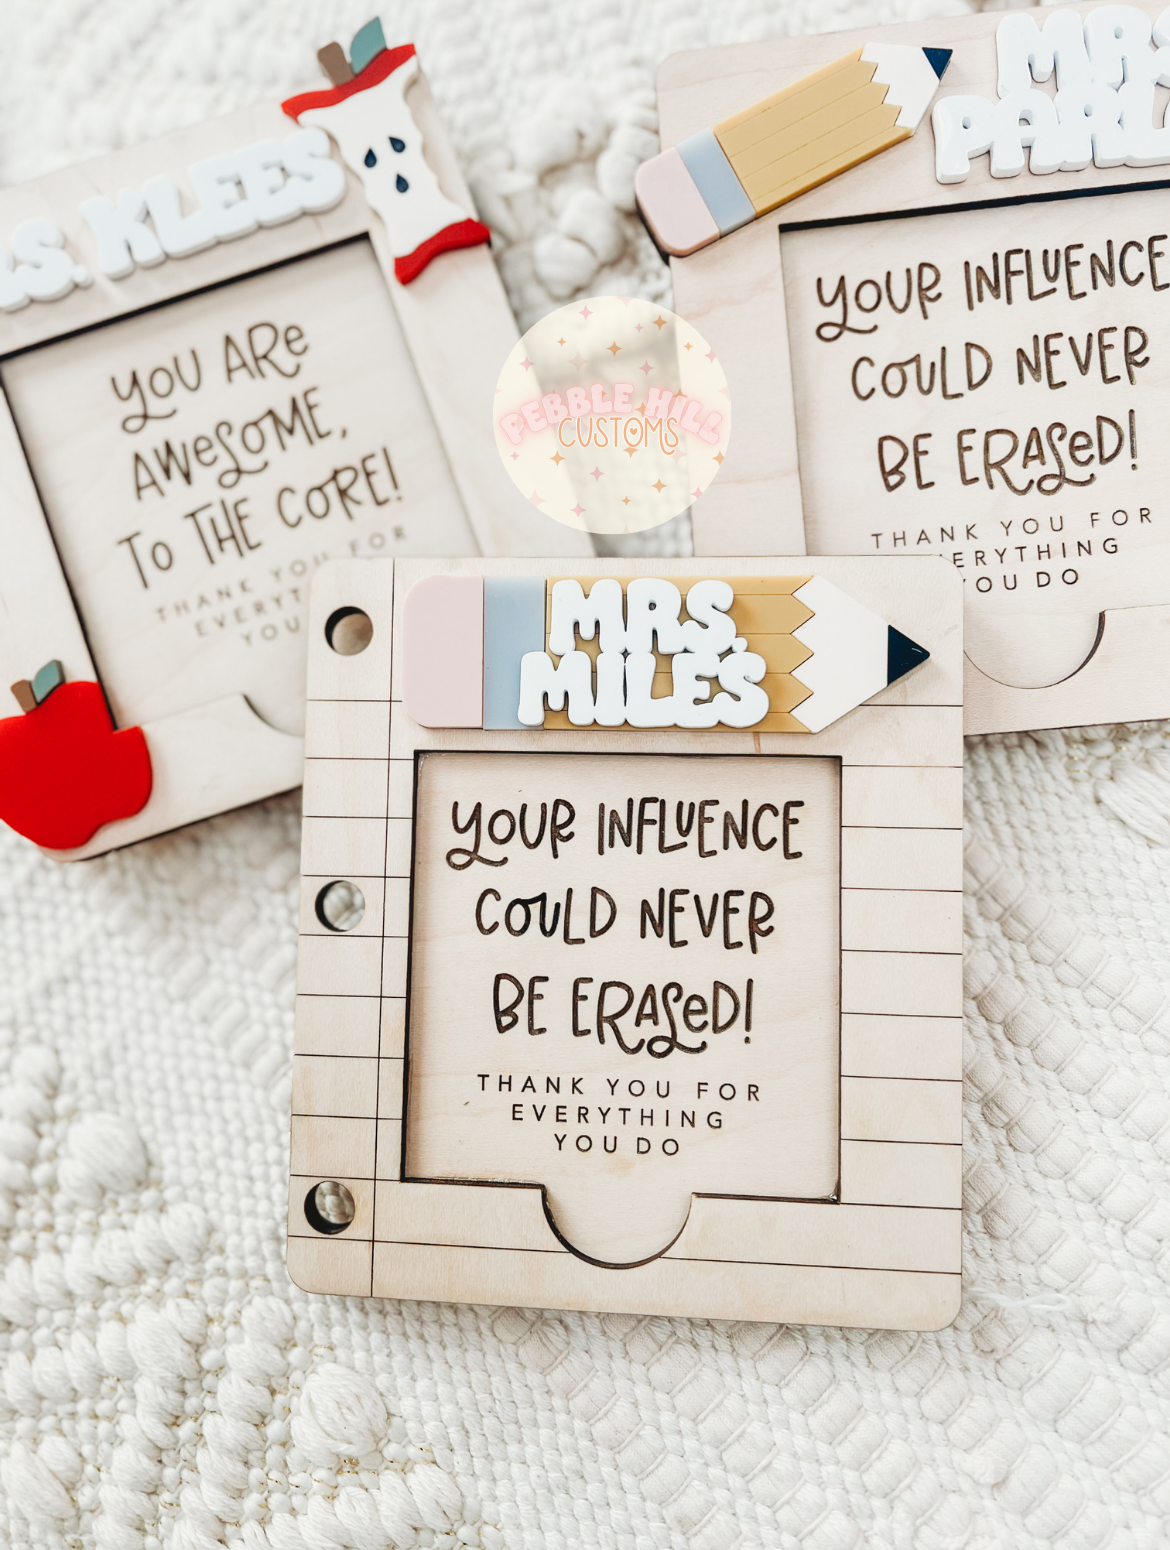 KLEES
YOU ARe
AWeSOME,
To THE CORE!
THANK YOU FOR
YOU
MRS.
YOUR INFLUENCE
COULD NEVER
BE ERASeD!
THANK YOU FOR
YOU DO
PEBBLE HILL
CUSTOMS
MRS.
MILES
YOUR INFLUENCE
COULD NEVER
BE ERASeD!
THANK YOU FOR
EVERYTHING
YOU DO